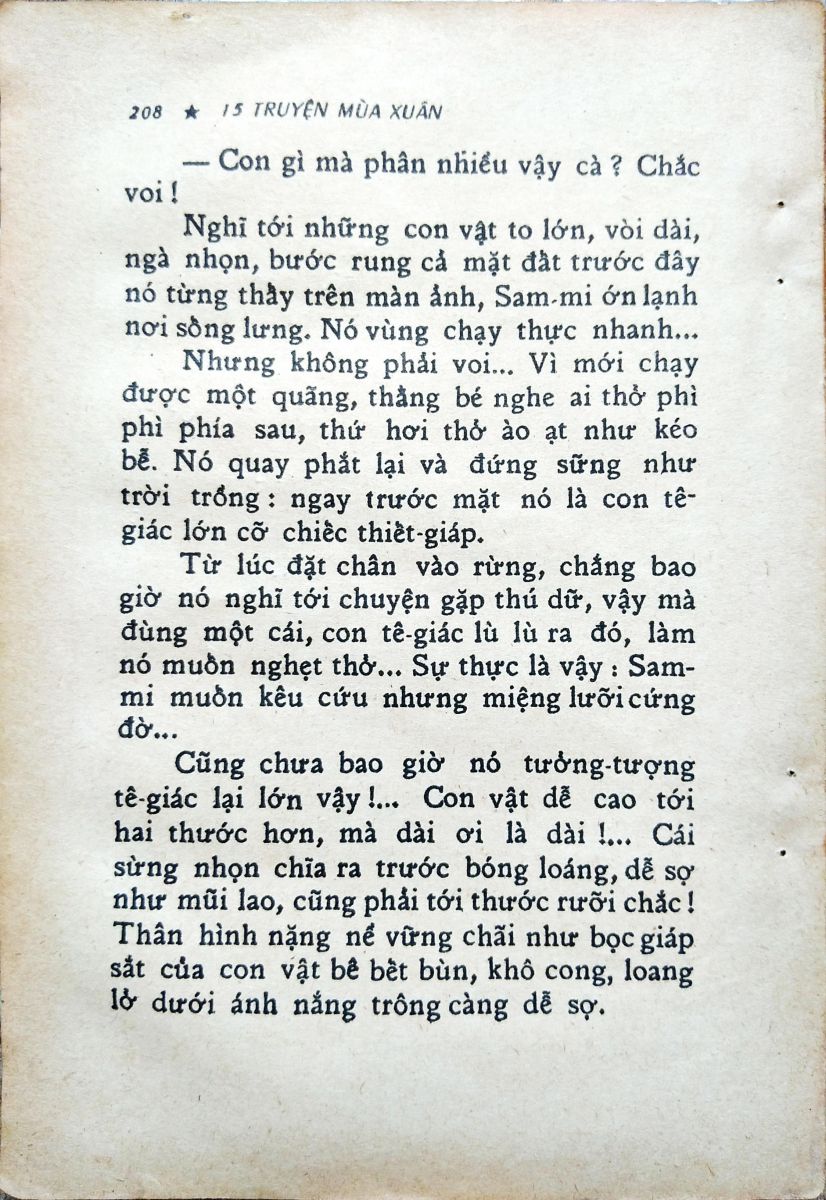 208 ★ 15 TRUYỆN MÙA XUÂN
— Con gì mà phân nhiều vậy cà ? Chắc
voi !
Nghĩ tới những con vật to lớn, vòi dài,
ngà nhọn, bước rung cả mặt đất trước đây
nó từng thấy trên màn ảnh, Sam-mi ớn lạnh
nơi sống lưng. Nó vùng chạy thực nhanh...
Nhưng không phải voi... Vì mới chạy
được một quãng, thằng bé nghe ai thở phì
phì phía sau, thứ hơi thở ào ạt như kéo
bễ. Nó quay phắt lại và đứng sững như
trời trồng : ngay trước mặt nó là con tê-
giác lớn cỡ chiếc thiết-giáp.
Từ lúc đặt chân vào rừng, chẳng bao
giờ nó nghĩ tới chuyện gặp thú dữ, vậy mà
đùng một cái, con tê-giác lù lù ra đó, làm
nó muốn nghẹt thở... Sự thực là vậy : Sam-
mi muốn kêu cứu nhưng miệng lưỡi cứng
đờ...
Cũng chưa bao giờ nó tưởng-tượng
tê-giác lại lớn vậy !... Con vật dễ cao tới
hai thước hơn, mà dài ơi là dài !... Cái
sừng nhọn chĩa ra trước bóng loáng, dễ sợ
như mũi lao, cũng phải tới thước rưỡi chắc !
Thân hình nặng nề vững chãi như bọc giáp
sắt của con vật bê bết bùn, khô cong, loang
lở dưới ánh nắng trông càng dễ sợ.